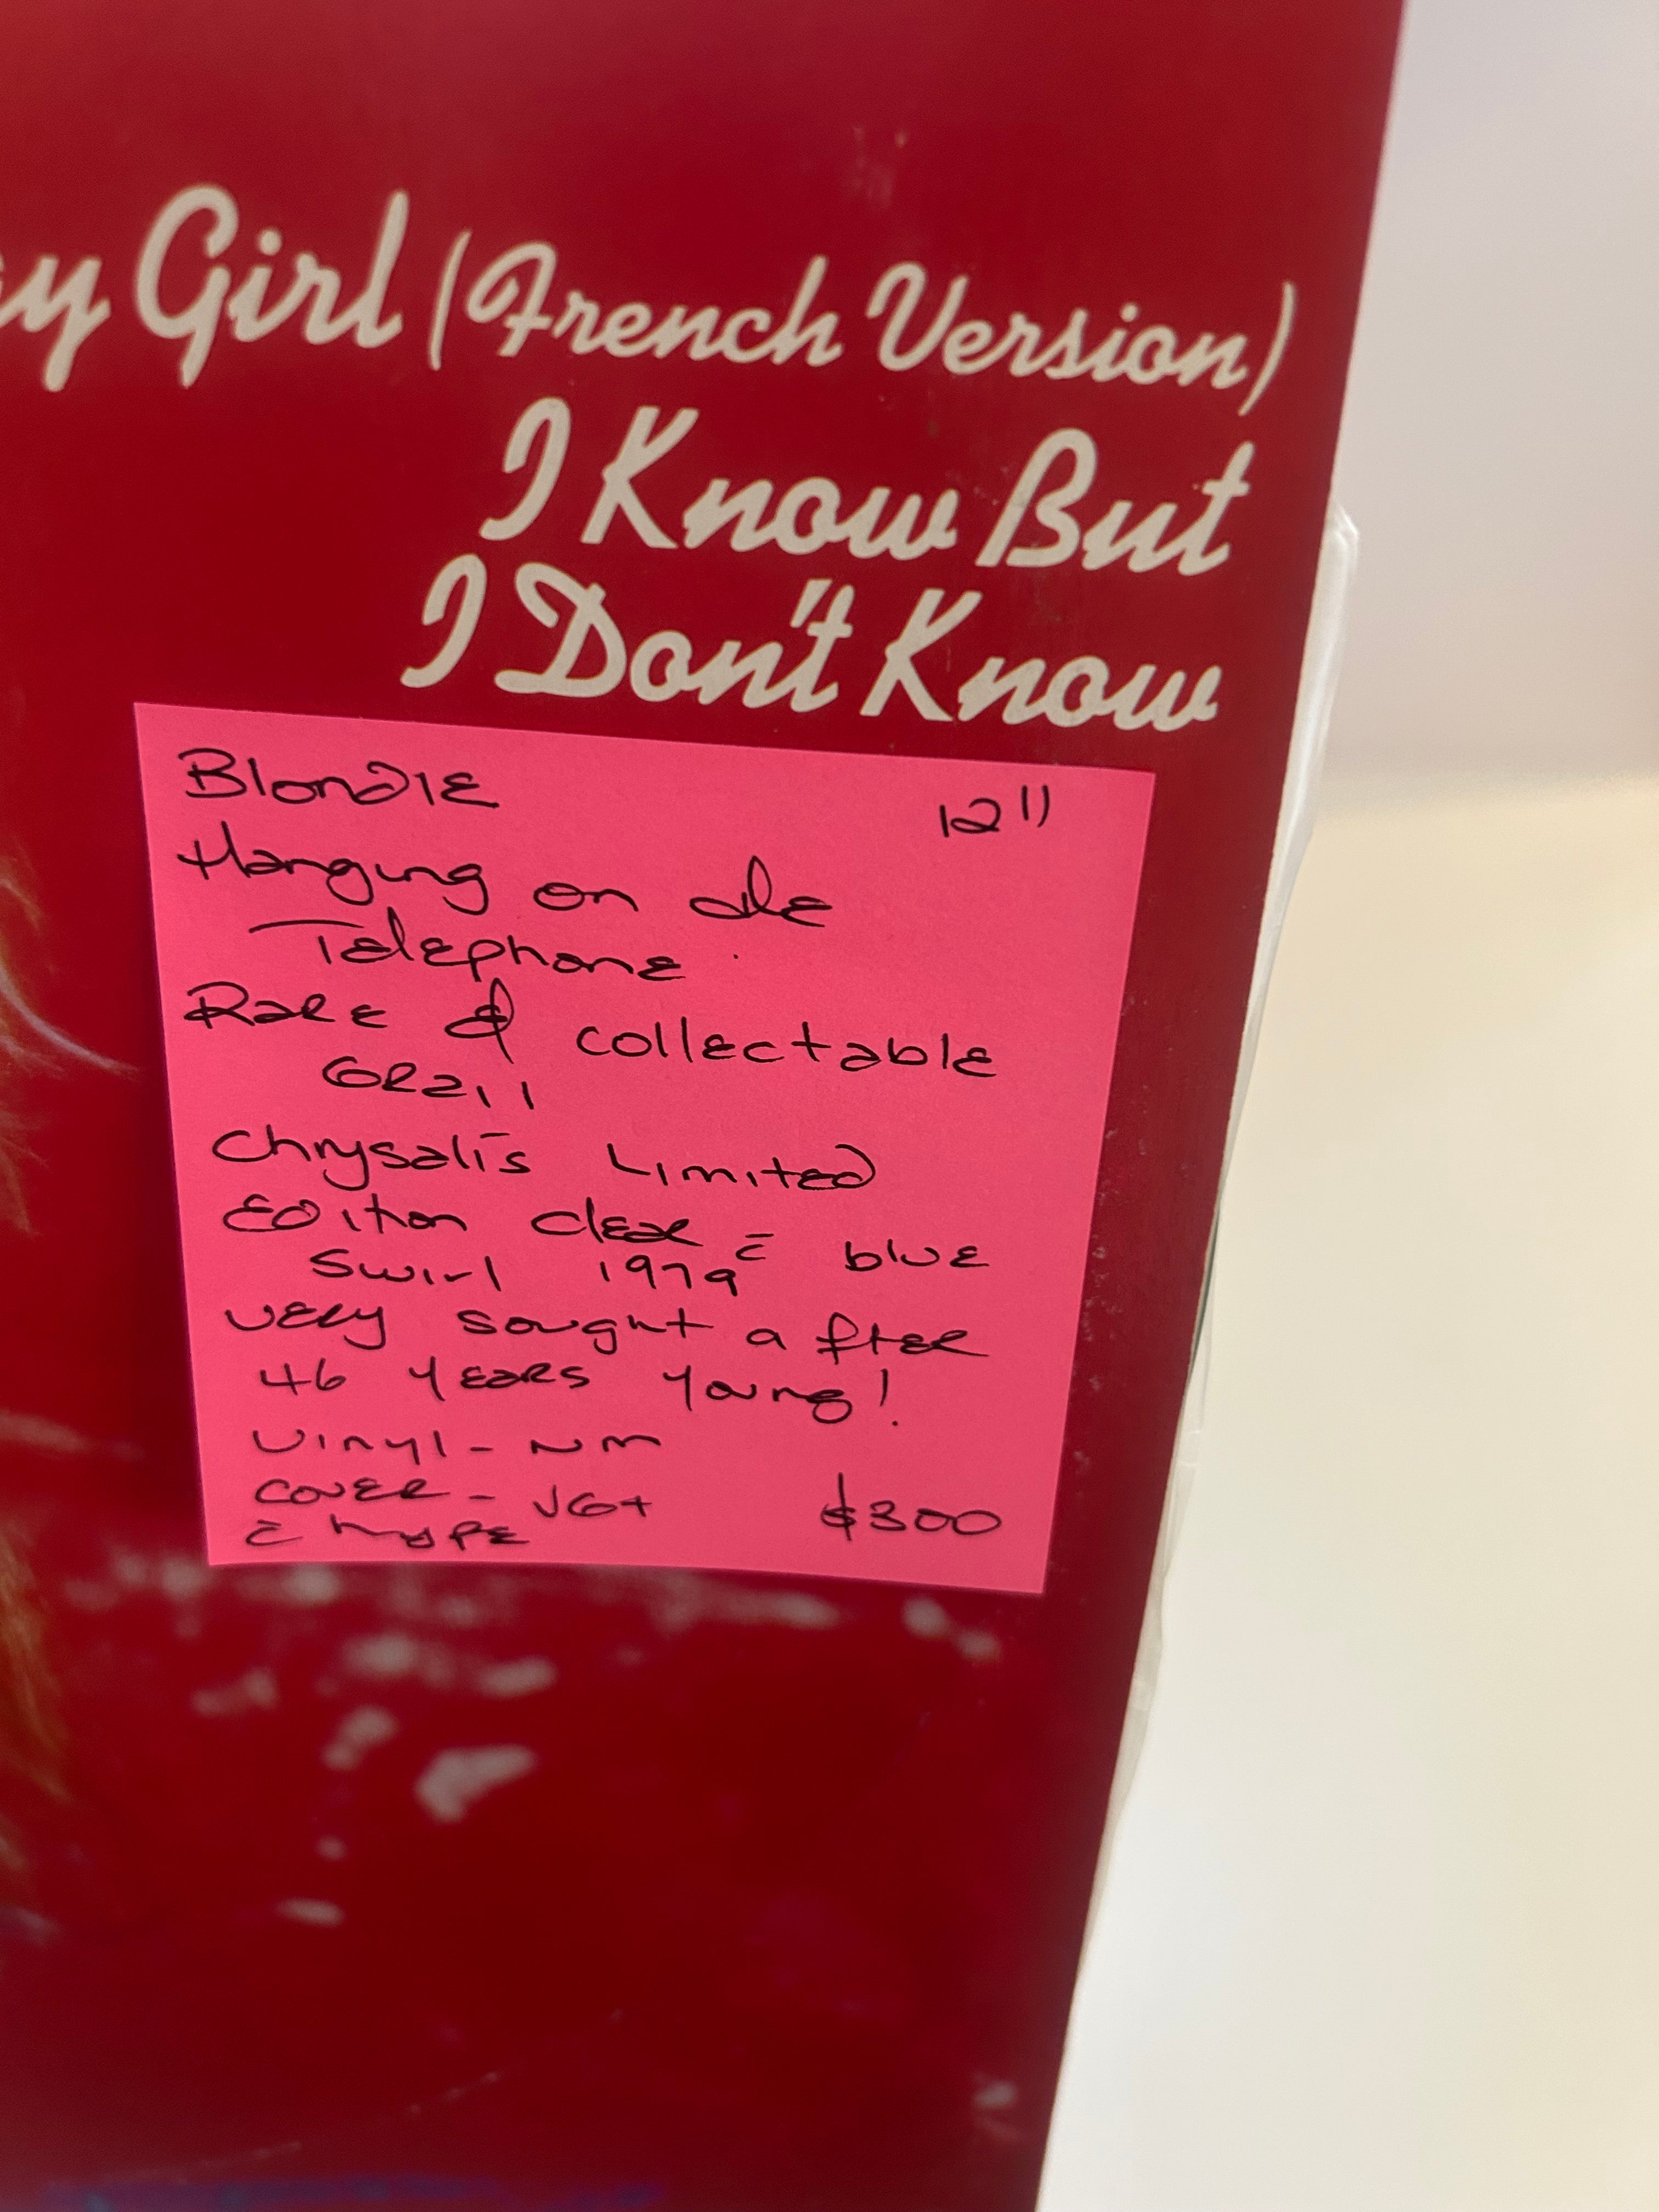 y Girl (French Version)
I Know But
I Don't Know
Blondie 12"
Hanging on the
Telephone
Rare & collectable
Grail
Chrysalis Limited
Edition clear c̄ blue
Swirl 1979
very sought after
46 years young!
Vinyl - NM
Cover - VG+ $300
c̄ hype